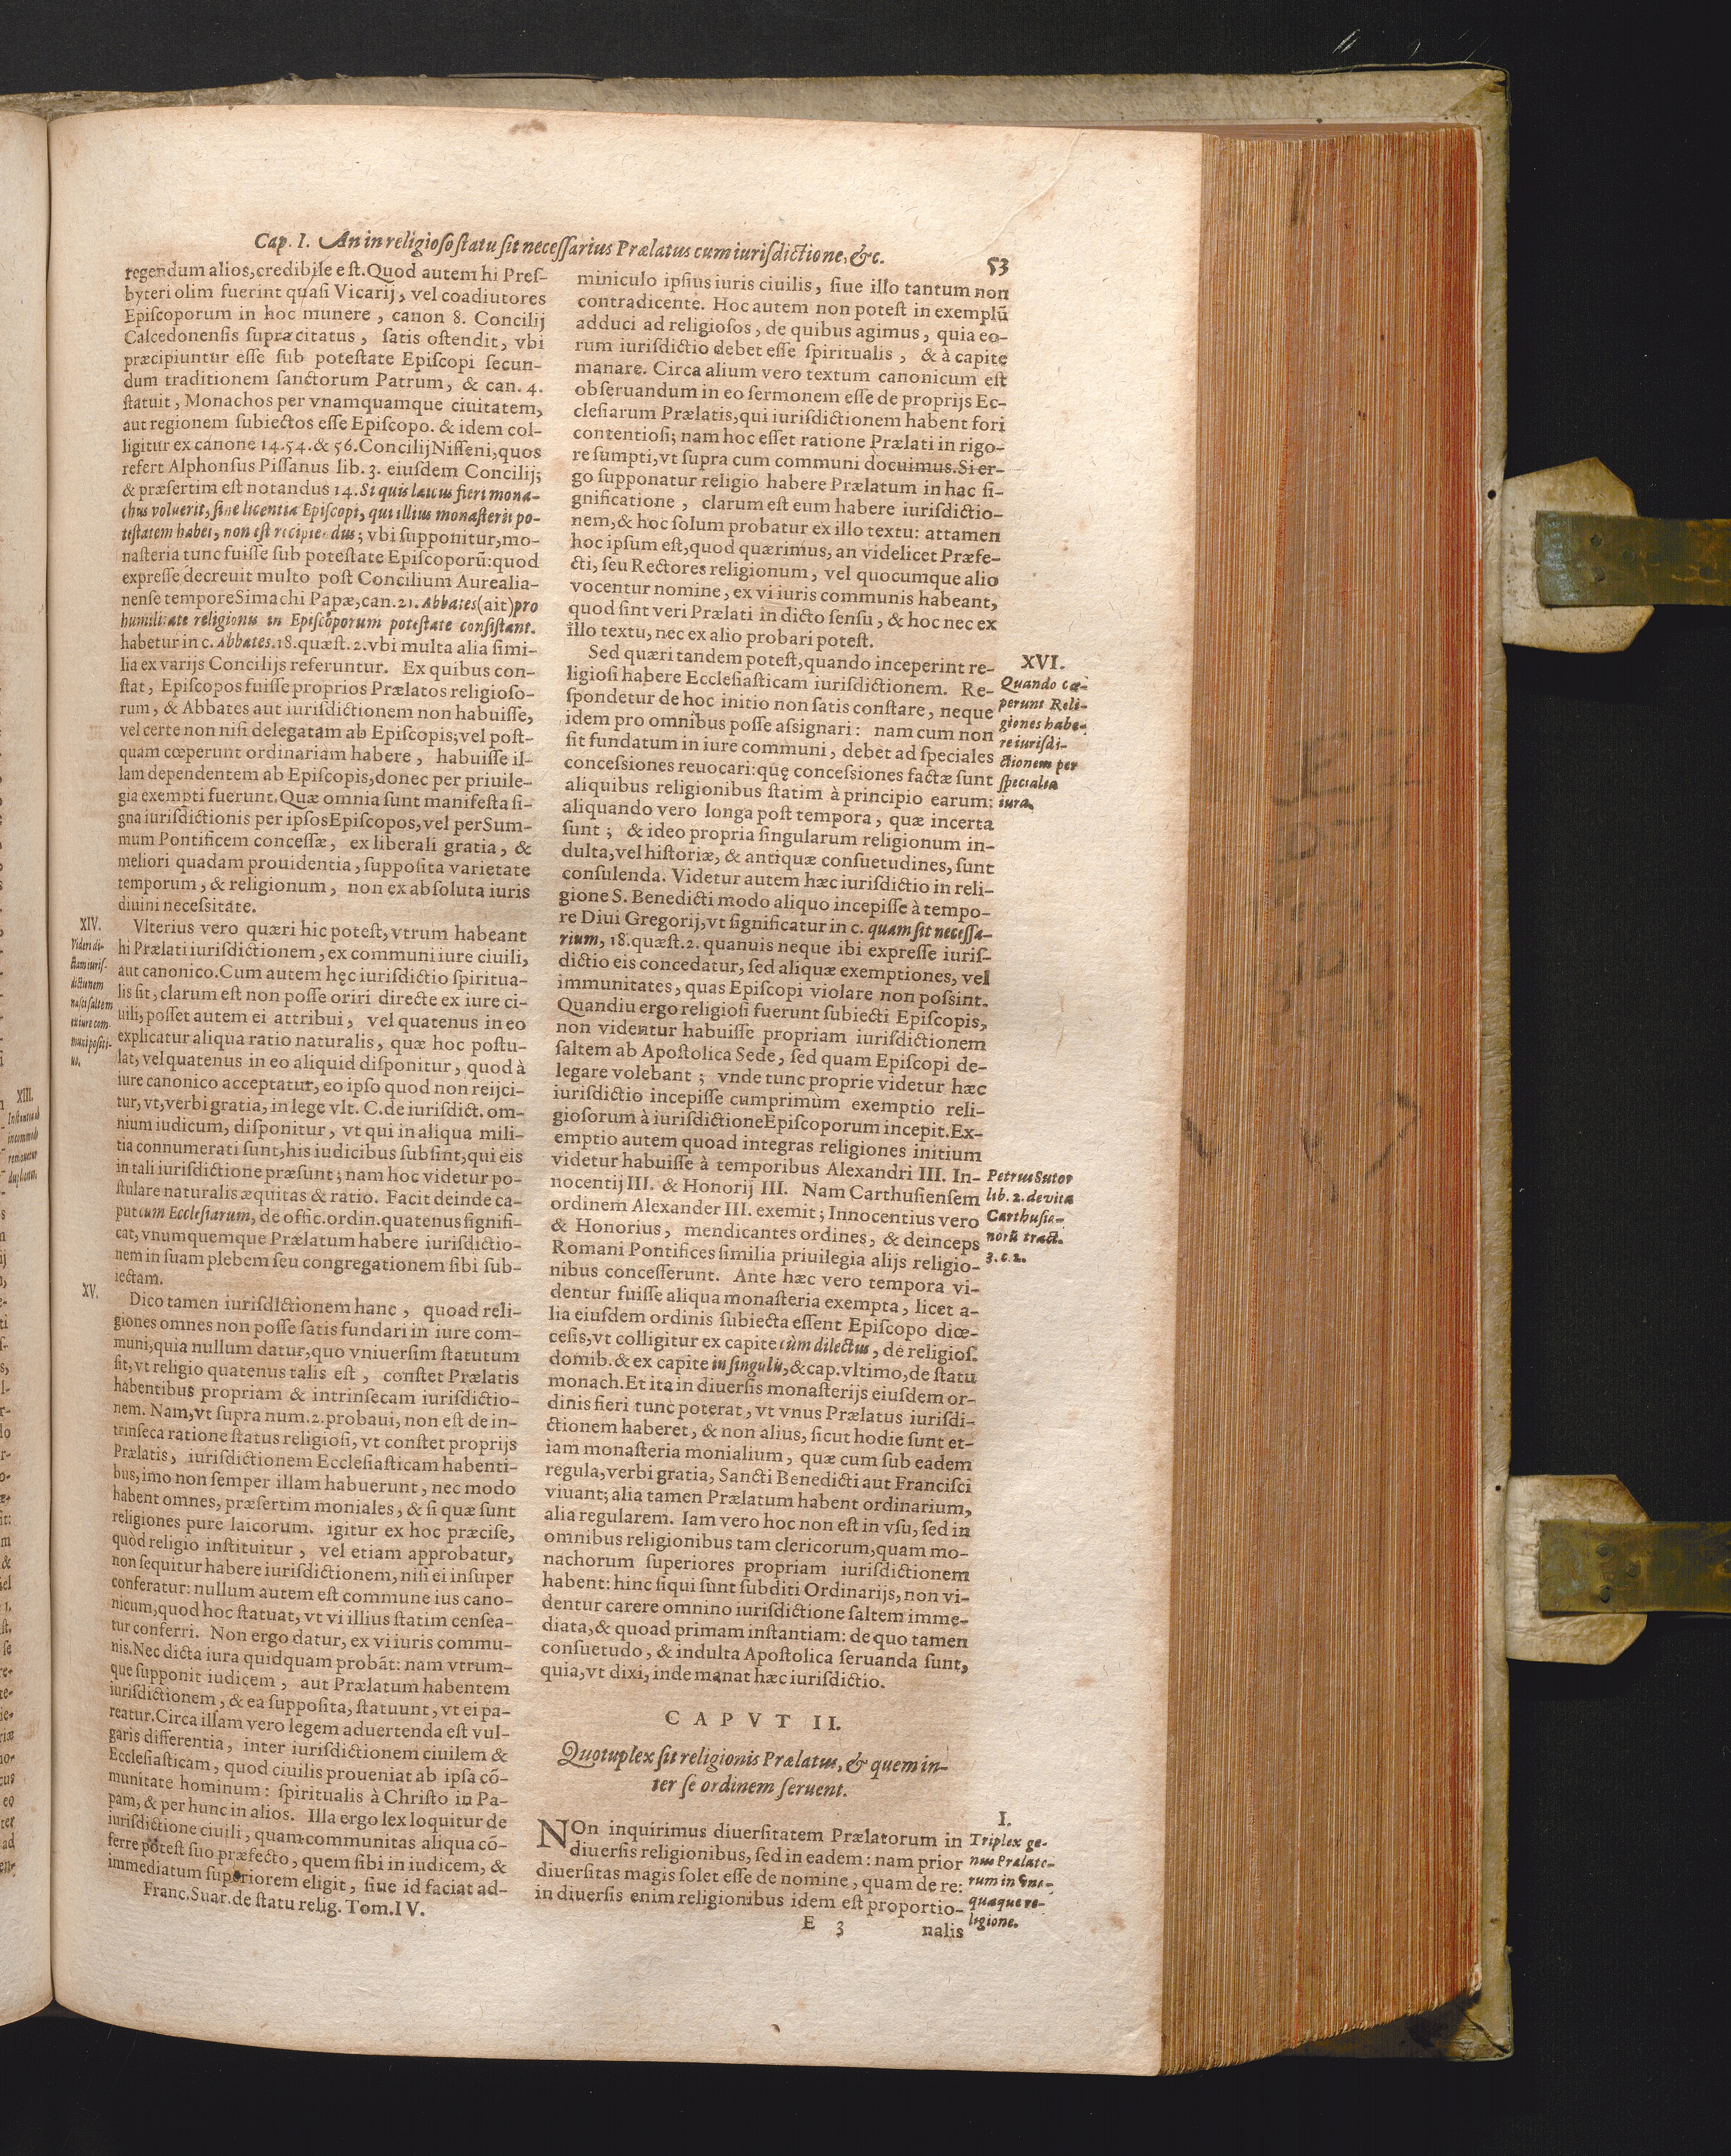 Cap. I. An in religioso statu sit necessarius Prælatus cum iurisdictione, &c.
53
regendum alios, credibile est. Quod autem hi Pres-
byteri olim fuerint quasi Vicarij, vel coadiutores
Episcoporum in hoc munere, canon 8. Concilij
Calcedonensis supra citatus, satis ostendit, vbi
præcipiuntur esse sub potestate Episcopi secun-
dum traditionem sanctorum Patrum, & can. 4.
statuit, Monachos per vnamquamque ciuitatem,
aut regionem subiectos esse Episcopo. & idem col-
ligitur ex canone 14. 54. & 56. Concilij Nisseni, quos
refert Alphonsus Pissanus lib. 3. eiusdem Concilij;
& præsertim est notandus 14. Si quis laicus fieri mona-
chus voluerit, sine licentia Episcopi, qui illius monasterii po-
testatem habet, non est recipiendus; vbi supponitur, mo-
nasteria tunc fuisse sub potestate Episcoporũ: quod
expresse decreuit multo post Concilium Aurealia-
nense tempore Simachi Papæ, can. 21. Abbates (ait) pro
humilitate religionis in Episcoporum potestate consistant.
habetur in c. Abbates. 18. quæst. 2. vbi multa alia simi-
lia ex varijs Concilijs referuntur. Ex quibus con-
stat, Episcopos fuisse proprios Prælatos religioso-
rum, & Abbates aut iurisdictionem non habuisse,
vel certe non nisi delegatam ab Episcopis; vel post-
quam cœperunt ordinariam habere, habuisse il-
lam dependentem ab Episcopis, donec per priuile-
gia exempti fuerunt. Quæ omnia sunt manifesta si-
gna iurisdictionis per ipsos Episcopos, vel per Sum-
mum Pontificem concessæ, ex liberali gratia, &
meliori quadam prouidentia, supposita varietate
temporum, & religionum, non ex absoluta iuris
diuini necessitate.
XIV.
Videri di-
ctam iuris-
dictionem
nasci saltem
ex iure com-
muni positi-
uo.
Vlterius vero quæri hic potest, vtrum habeant
hi Prælati iurisdictionem, ex communi iure ciuili,
aut canonico. Cum autem hęc iurisdictio spiritua-
lis sit, clarum est non posse oriri directe ex iure ci-
uili; posset autem ei attribui, vel quatenus in eo
explicatur aliqua ratio naturalis, quæ hoc postu-
lat, vel quatenus in eo aliquid disponitur, quod à
iure canonico acceptatur, eo ipso quod non reijci-
tur, vt, verbi gratia, in lege vlt. C. de iurisdict. om-
nium iudicum, disponitur, vt qui in aliqua mili-
tia connumerati sunt, his iudicibus subsint, qui eis
in tali iurisdictione præsunt; nam hoc videtur po-
stulare naturalis æquitas & ratio. Facit deinde ca-
put cum Ecclesiarum, de offic. ordin. quatenus signifi-
cat, vnumquemque Prælatum habere iurisdictio-
nem in suam plebem seu congregationem sibi sub-
iectam.
XV.
Dico tamen iurisdictionem hanc, quoad reli-
giones omnes non posse satis fundari in iure com-
muni, quia nullum datur, quo vniuersim statutum
sit, vt religio quatenus talis est, constet Prælatis
habentibus propriam & intrinsecam iurisdictio-
nem. Nam, vt supra num. 2. probaui, non est de in-
trinseca ratione status religiosi, vt constet proprijs
Prælatis, iurisdictionem Ecclesiasticam habenti-
bus, imo non semper illam habuerunt, nec modo
habent omnes, præsertim moniales, & si quæ sunt
religiones pure laicorum. igitur ex hoc præcise,
quod religio instituitur, vel etiam approbatur,
non sequitur habere iurisdictionem, nisi ei insuper
conferatur: nullum autem est commune ius cano-
nicum, quod hoc statuat, vt vi illius statim censea-
tur conferri. Non ergo datur, ex vi iuris commu-
nis. Nec dicta iura quidquam probãt: nam vtrum-
que supponit iudicem, aut Prælatum habentem
iurisdictionem, & ea supposita, statuunt, vt ei pa-
reatur. Circa illam vero legem aduertenda est vul-
garis differentia, inter iurisdictionem ciuilem &
Ecclesiasticam, quod ciuilis proueniat ab ipsa cõ-
munitate hominum: spiritualis à Christo in Pa-
pam, & per hunc in alios. Illa ergo lex loquitur de
iurisdictione ciuili, quam communitas aliqua cõ-
ferre potest suo præfecto, quem sibi in iudicem, &
immediatum superiorem eligit, siue id faciat ad-
Franc. Suar. de statu relig. Tom. IV.
miniculo ipsius iuris ciuilis, siue illo tantum non
contradicente. Hoc autem non potest in exemplũ
adduci ad religiosos, de quibus agimus, quia eo-
rum iurisdictio debet esse spiritualis, & à capite
manare. Circa alium vero textum canonicum est
obseruandum in eo sermonem esse de proprijs Ec-
clesiarum Prælatis, qui iurisdictionem habent fori
contentiosi; nam hoc esset ratione Prælati in rigo-
re sumpti, vt supra cum communi docuimus. Si er-
go supponatur religio habere Prælatum in hac si-
gnificatione, clarum est eum habere iurisdictio-
nem, & hoc solum probatur ex illo textu: attamen
hoc ipsum est, quod quærimus, an videlicet Præfe-
cti, seu Rectores religionum, vel quocumque alio
vocentur nomine, ex vi iuris communis habeant,
quod sint veri Prælati in dicto sensu, & hoc nec ex
illo textu, nec ex alio probari potest.
Sed quæri tandem potest, quando inceperint re-
ligiosi habere Ecclesiasticam iurisdictionem. Re-
spondetur de hoc initio non satis constare, neque
idem pro omnibus posse assignari: nam cum non
sit fundatum in iure communi, debet ad speciales
concessiones reuocari: quę concessiones factæ sunt
aliquibus religionibus statim à principio earum;
aliquando vero longa post tempora, quæ incerta
sunt; & ideo propria singularum religionum in-
dulta, vel historiæ, & antiquæ consuetudines, sunt
consulenda. Videtur autem hæc iurisdictio in reli-
gione S. Benedicti modo aliquo incepisse à tempo-
re Diui Gregorij, vt significatur in c. quam sit necessa-
rium, 18. quæst. 2. quanuis neque ibi expresse iuris-
dictio eis concedatur, sed aliquæ exemptiones, vel
immunitates, quas Episcopi violare non possint.
Quandiu ergo religiosi fuerunt subiecti Episcopis,
non videntur habuisse propriam iurisdictionem
saltem ab Apostolica Sede, sed quam Episcopi de-
legare volebant; vnde tunc proprie videtur hæc
iurisdictio incepisse cum primùm exemptio reli-
giosorum à iurisdictione Episcoporum incepit. Ex-
emptio autem quoad integras religiones initium
videtur habuisse à temporibus Alexandri III. In-
nocentij III. & Honorij III. Nam Carthusiensem
ordinem Alexander III. exemit; Innocentius vero
& Honorius, mendicantes ordines, & deinceps
Romani Pontifices similia priuilegia alijs religio-
nibus concesserunt. Ante hæc vero tempora vi-
dentur fuisse aliqua monasteria exempta, licet a-
lia eiusdem ordinis subiecta essent Episcopo diœ-
cesis, vt colligitur ex capite cùm dilectus, de religios.
domib. & ex capite in singulis, & cap. vltimo, de statu
monach. Et ita in diuersis monasterijs eiusdem or-
dinis fieri tunc poterat, vt vnus Prælatus iurisdi-
ctionem haberet, & non alius, sicut hodie sunt et-
iam monasteria monialium, quæ cum sub eadem
regula, verbi gratia, Sancti Benedicti aut Francisci
viuant; alia tamen Prælatum habent ordinarium,
alia regularem. Iam vero hoc non est in vsu, sed in
omnibus religionibus tam clericorum, quam mo-
nachorum superiores propriam iurisdictionem
habent: hinc si qui sunt subditi Ordinarijs, non vi-
dentur carere omnino iurisdictione saltem imme-
diata, & quoad primam instantiam: de quo tamen
consuetudo, & indulta Apostolica seruanda sunt,
quia, vt dixi, inde manat hæc iurisdictio.
XVI.
Quando cœ-
perunt Reli-
giones habe-
re iurisdi-
ctionem per
specialia
iura.
Petrus Sutor
lib. 2. de vita
Carthusia-
norũ tract.
3. c. 2.
CAPVT II.
Quotuplex sit religionis Prælatus, & quem in-
ter se ordinem seruent.
NOn inquirimus diuersitatem Prælatorum in
diuersis religionibus, sed in eadem: nam prior
diuersitas magis solet esse de nomine, quam de re:
in diuersis enim religionibus idem est proportio-
I.
Triplex ge-
nus Prælato-
rum in vna-
quaque re-
ligione.
E 3
nalis
XIII.